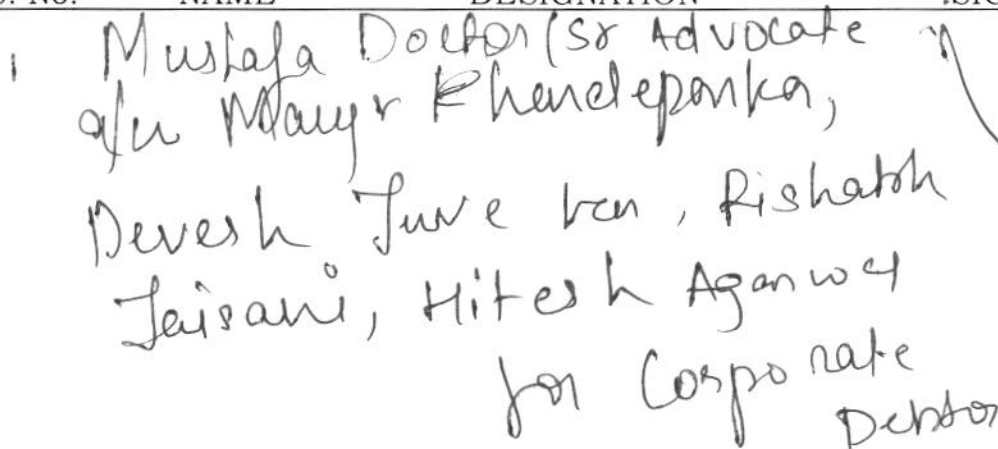 S. No. NAME DESIGNATION SIG
1 Mustafa Doctor (Sr Advocate
a/w Mayur Khandeparkar,
Devesh Juvekar, Rishabh
Jaisani, Hitesh Agarwal
for Corporate
Debtor